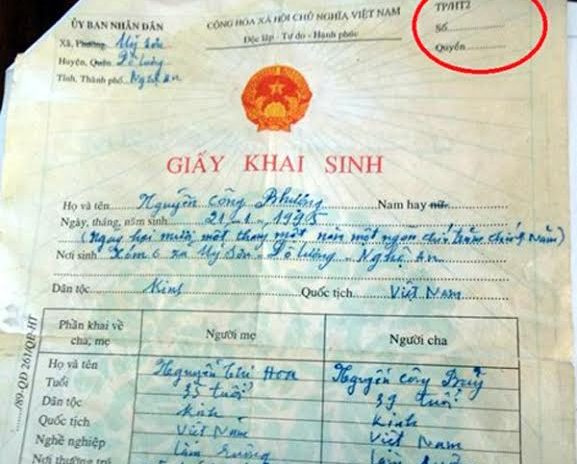 ỦY BAN NHÂN DÂN
CỘNG HÒA XÃ HỘI CHỦ NGHĨA VIỆT NAM
TP/HT2
Xã, Phường Mỹ Sơn
Độc lập - Tự do - Hạnh phúc
Số
Huyện, Quận Đô Lương
Quyển
Tỉnh, Thành phố Nghệ An
GIẤY KHAI SINH
Họ và tên Nguyễn Công Phượng Nam hay nữ
Ngày, tháng, năm sinh 21-1-1995
(Ngày hai mươi một tháng một năm một ngàn chín trăm chín 9 năm)
Nơi sinh Xóm 6 xã Mỹ Sơn - Đô Lương - Nghệ An
Dân tộc Kinh Quốc tịch Việt Nam
Phần khai về cha, mẹ Người mẹ Người cha
Họ và tên Nguyễn Thị Hoa Nguyễn Công Bảy
Tuổi 35 tuổi 39 tuổi
Dân tộc Kinh Kinh
Quốc tịch Việt Nam Việt Nam
Nghề nghiệp Làm ruộng Làm ruộng
Nơi thường trú
/89-QĐ 261/QĐ-HT